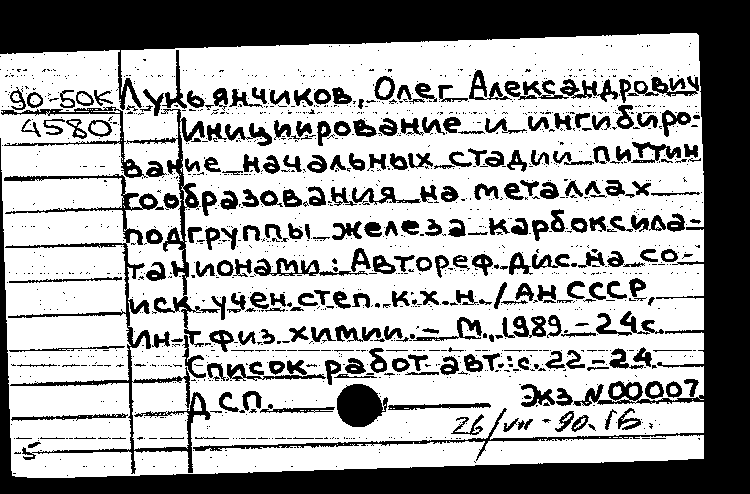 90-50К Лукьянчиков, Олег Александрович
4580 Инициирование и ингибиро-
вание начальных стадий питтин
гообразования на металлах
подгруппы железа карбоксила-
танионами: Автореф. дис. на со-
иск. учен. степ. к.х.н. / АН СССР,
Ин-т физ. химии. - М., 1989. - 24 с.
Список работ авт.: с. 22-24.
ДСП. Экз. N 00007.
26/VII-90. 1Б.
5